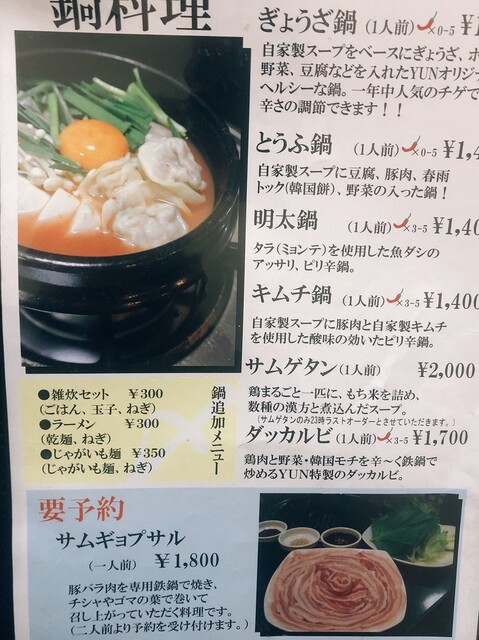 鍋料理
ぎょうざ鍋 (1人前) ×0-5 ¥1
自家製スープをベースにぎょうざ、
野菜、豆腐などを入れたYUNオリジ
ヘルシーな鍋。一年中人気のチゲで
辛さの調節できます！！
とうふ鍋 (1人前) ×0-5 ¥1,4
自家製スープに豆腐、豚肉、春雨
トック(韓国餅)、野菜の入った鍋！
明太鍋 (1人前) ×3-5 ¥1,40
タラ(ミョンテ)を使用した魚ダシの
アッサリ、ピリ辛鍋。
キムチ鍋 (1人前) ×3-5 ¥1,400
自家製スープに豚肉と自家製キムチ
を使用した酸味の効いたピリ辛鍋。
サムゲタン(1人前) ¥2,000
鶏まるごと一匹に、もち米を詰め、
数種の漢方と煮込んだスープ。
(サムゲタンのみ23時ラストオーダーとさせていただきます。)
ダッカルビ(1人前) ×3-5 ¥1,700
鶏肉と野菜・韓国モチを辛～く鉄鍋で
炒めるYUN特製のダッカルビ。
鍋追加メニュー
●雑炊セット ¥300
(ごはん、玉子、ねぎ)
●ラーメン ¥300
(乾麺、ねぎ)
●じゃがいも麺 ¥350
(じゃがいも麺、ねぎ)
要予約
サムギョプサル
(一人前) ¥1,800
豚バラ肉を専用鉄鍋で焼き、
チシャやゴマの葉で巻いて
召し上がっていただく料理です。
(二人前より予約を受け付けます。)